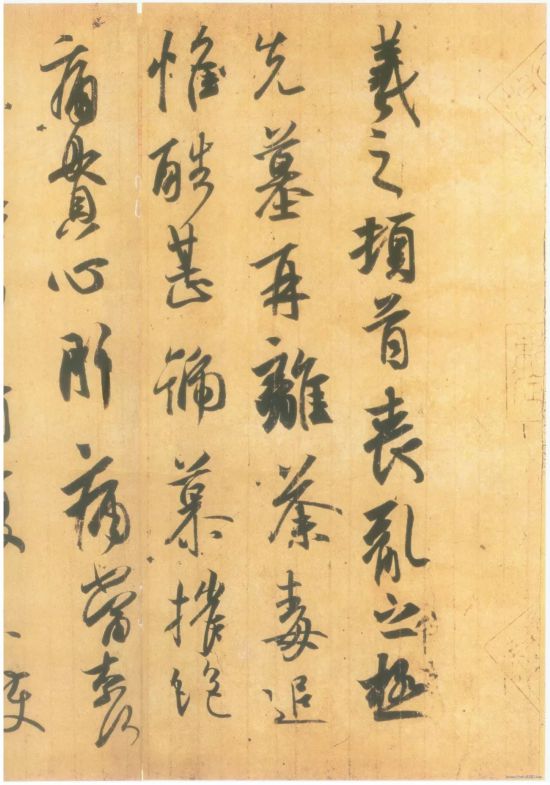 羲之頓首喪亂之極
先墓再離荼毒追
惟酷甚號慕摧絕
痛貫心肝痛當柰何